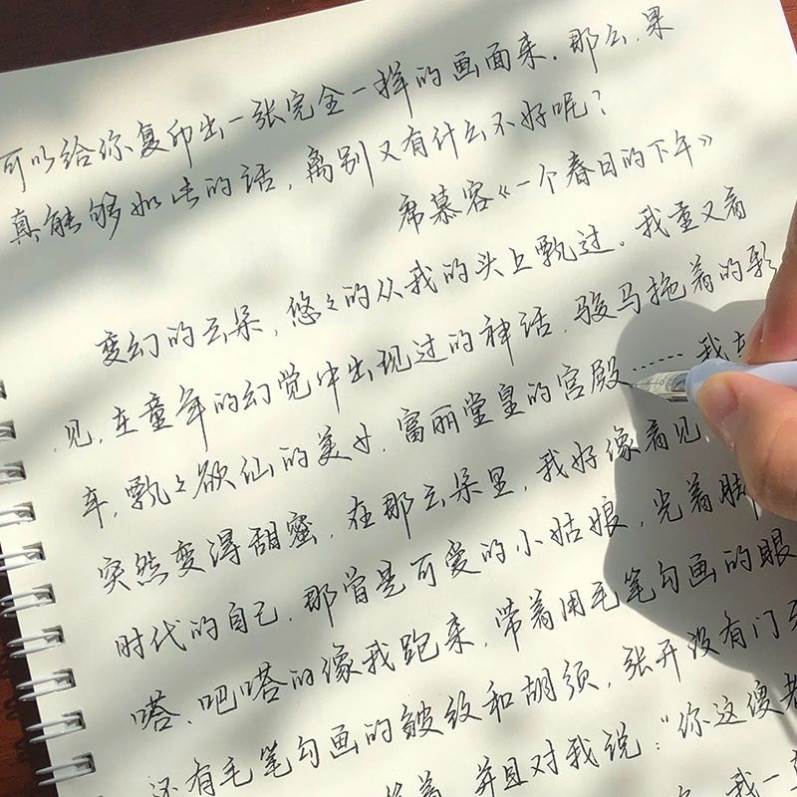 可以给你复印出一张完全一样的画面来.那么.果
真能够如此的话,离别又有什么不好呢?
席慕容《一个春日的下午》
变幻的云朵,悠々的从我的头上飘过。我重又看
见,在童年的幻觉中出现过的神话,骏马拖着的彩
车,飘々欲仙的美女,富丽堂皇的宫殿……我
突然变得甜蜜,在那云朵里,我好像看见,
时代的自己,那曾是可爱的小姑娘,光着脚
嗒、吧嗒的像我跑来,带着用毛笔勾画的眼
还有毛笔勾画的皱纹和胡须,张开没有门牙
着,并且对我说:"你这傻
我一